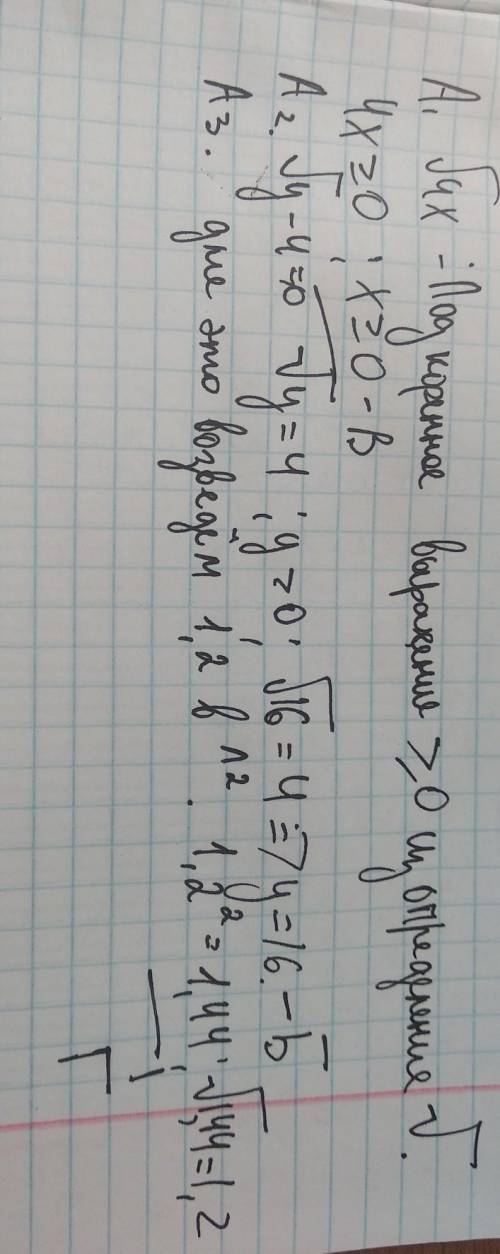 А1 √4x - Под коренное выражение ≥0 из определение √.
4x≥0; x≥0 - В
А2. √y-4=0 √y=4; y≥0; √16=4 => y=16. - Б
А3. для это возведем 1,2 в n². 1,2²=1,44; √1,44=1,2
Г